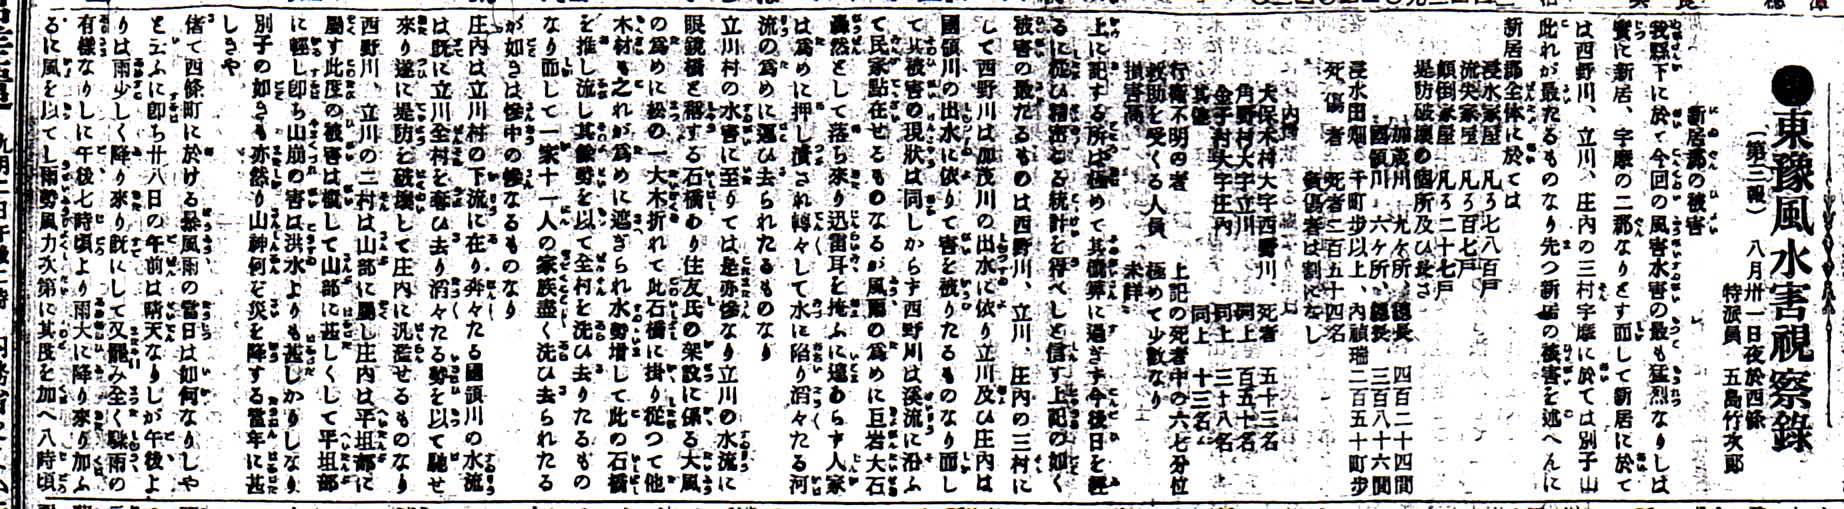 ●東豫風水害視察錄
(第三報) 八月卅一日夜於西條
特派員 五島竹次郞
新居郡の被害
我縣下に於て今回の風害水害の最も猛烈なりしは
實に新居、宇摩の二郡なりとす而して新居に於て
は西野川、立川、庄内の三村宇摩に於ては別子山
此れが最たるものなり先つ新居の被害を述へんに
新居郡全体に於ては
浸水家屋 凡ろ七八百戸
流失家屋 凡ろ百七戸
顚倒家屋 凡ろ二十七戸
堤防破壞の個所及ひ長さ
加茂川 九ヶ所、總長 四百二十四間
國領川 六ヶ所、總長 三百八十六間
浸水田畑 千町步以上、内禎瑞二百五十町步
死傷者 死者二百五十四名
負傷者は割になし
內譯
大保木村大字西野川、 死者 五十三名
角野村大字立川 同上 百五十名
金子村大字庄内 同上 三十八名
其他 同上 十三名
行衞不明の者 上記の死者中の六七分位
救助を受くる人員 極めて少數なり
損害高 未詳
上に記する所は極めて其槪算に過ぎす今後日を經
るに從ひ精密なる統計を得べしと信す上記の如く
被害の最たるものは西野川、立川、庄内の三村に
して西野川は加茂川の出水に依り立川及ひ庄内は
國領川の出水に依りて害を被りたるものなり而し
て其被害の現狀は同しからす西野川は溪流に沿ふ
て民家點在せるものなるが風雨の爲めに巨岩大石
轟然として落ち來り迅雷耳を掩ふに遑あらす人家
は爲めに押し潰され轉々して水に陷り滔々たる河
流の爲めに運ひ去られたるものなり
立川村の水害に至りては是亦慘なり立川の水流に
眼鏡橋と稱する石橋あり住友氏の架設に係る大風
の爲めに松の一大木折れて此石橋に掛り從つて他
木材も之れが爲めに遮ぎられ水勢增して此の石橋
を推し流し其餘勢を以て全村を洗ひ去りたるもの
なり而して一家十一人の家族盡く洗ひ去られたる
が如きは慘中の慘なるものなり
庄内は立川村の下流に在り奔々たる國領川の水流
は既に立川全村を奪ひ去り滔々たる勢を以て馳せ
來り遂に堤防を破壞して庄内に汎濫せるものなり
西野川、立川の二村は山部に屬し庄内は平坦部に
屬す此度の被害は槪して山部に甚しくして平坦部
に輕し卽ち山崩の害は洪水よりも甚しかりしなり
別子の如きも亦然り山神何ぞ災を降する當年に甚
しきや
偖て西條町に於ける暴風雨の當日は如何なりしや
と云ふに卽ち廿八日の午前は晴天なりしが午後よ
りは雨少しく降り來り既にして又罷み全く驟雨の
有樣なりしに午後七時頃より雨大に降り來り加ふ
るに風を以てし雨勢風力次第に其度を加へ八時頃